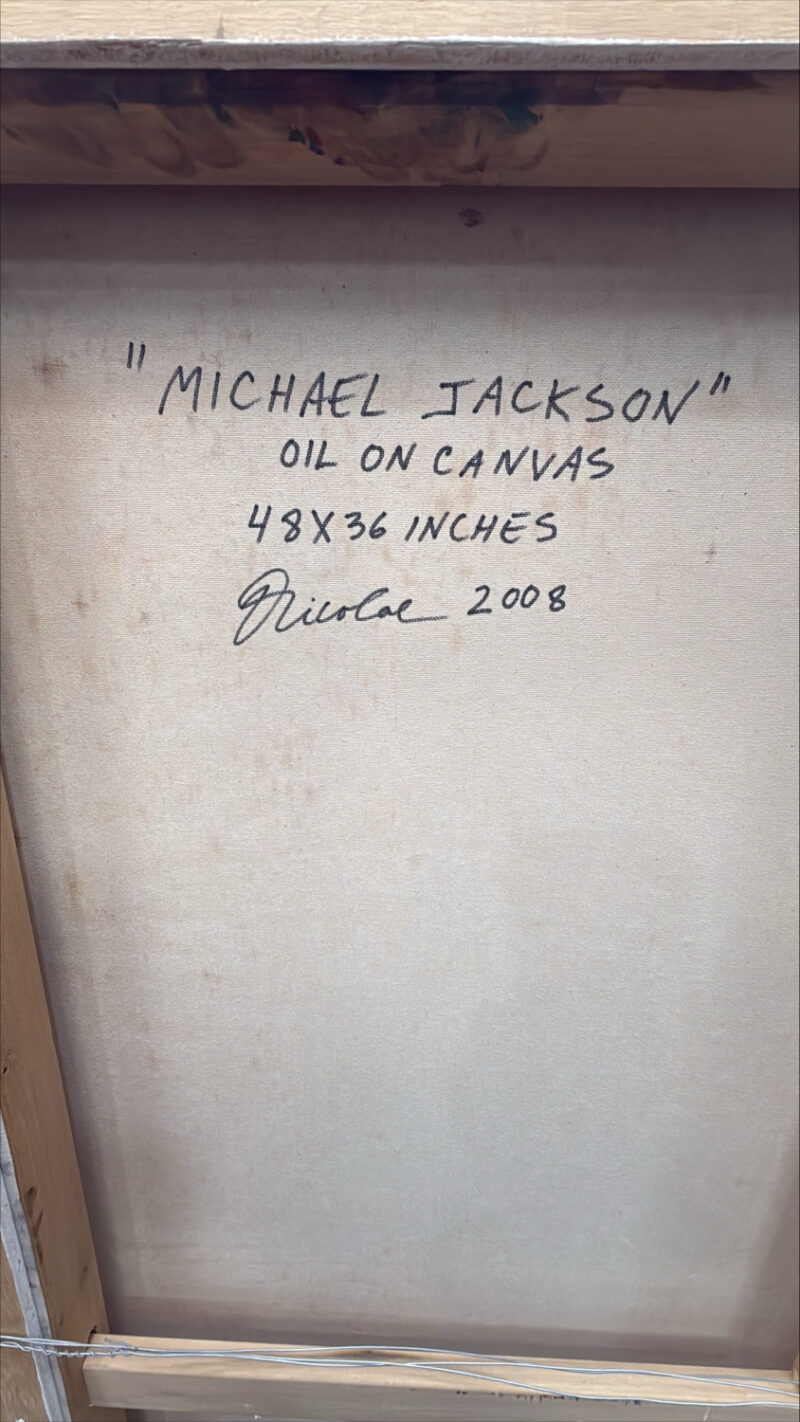 "MICHAEL JACKSON"
OIL ON CANVAS
48X36 INCHES
Nicolae 2008